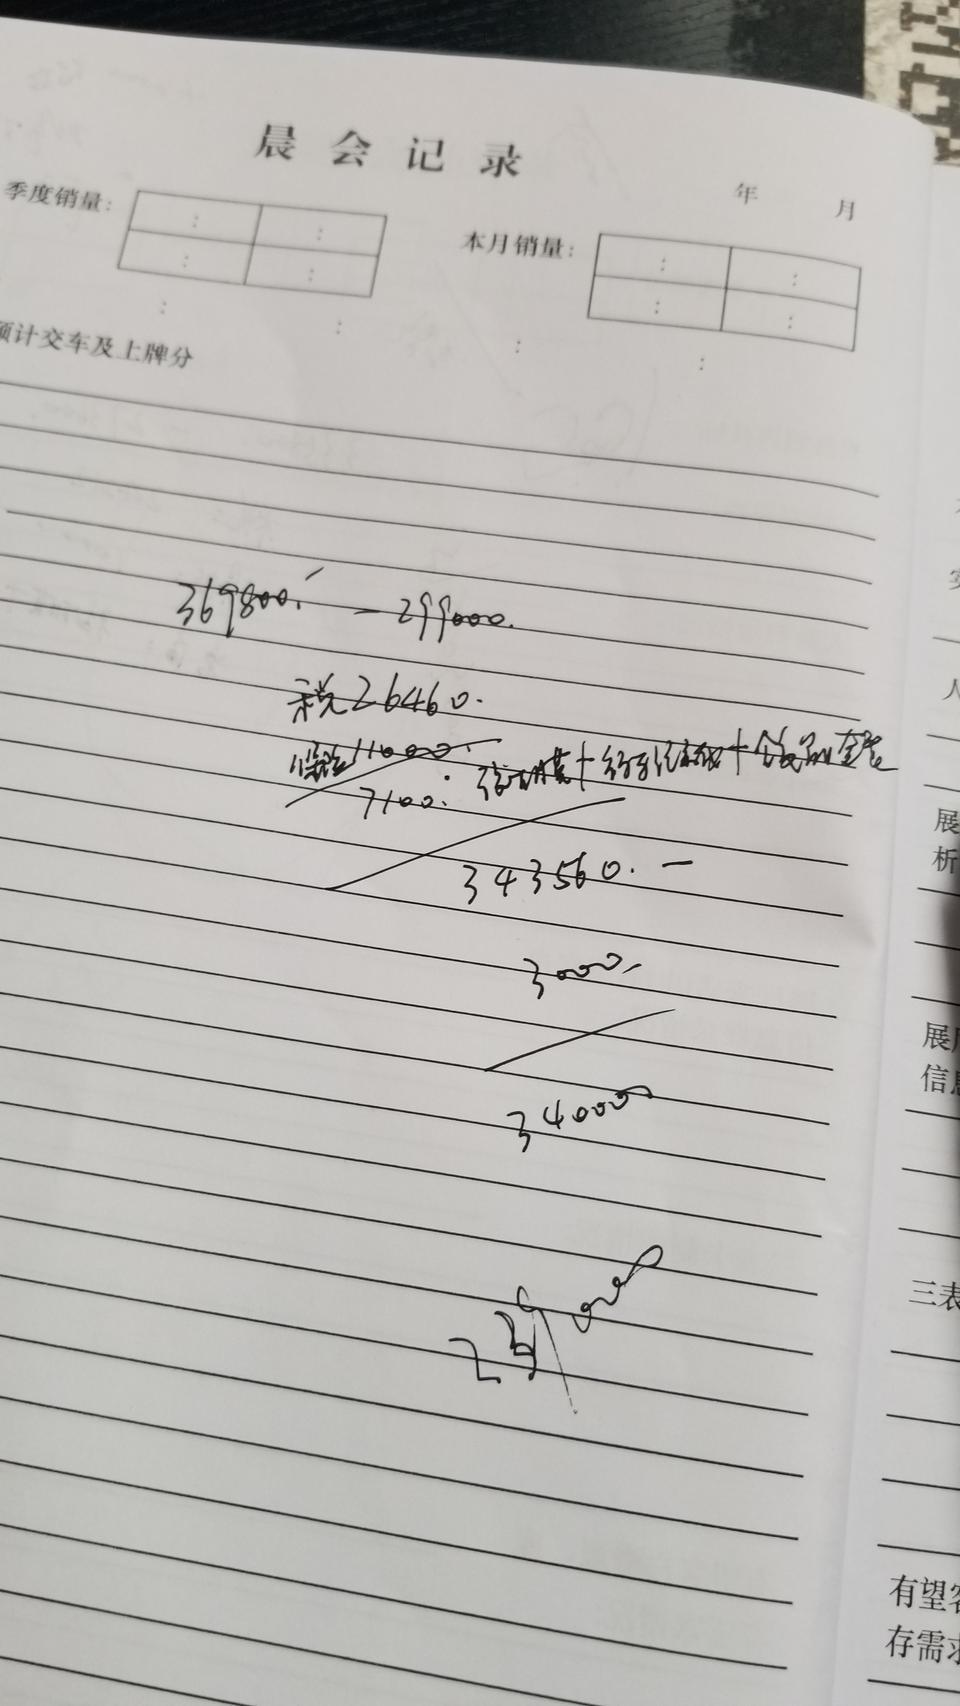 晨会记录
年 月
季度销量：
本月销量：
预计交车及上牌分
369800. - 299000.
税26460.
保险11000.
7100. 行车记录仪
343560. -
3000.
34000
展
析
信息
三表
有望客
存需求